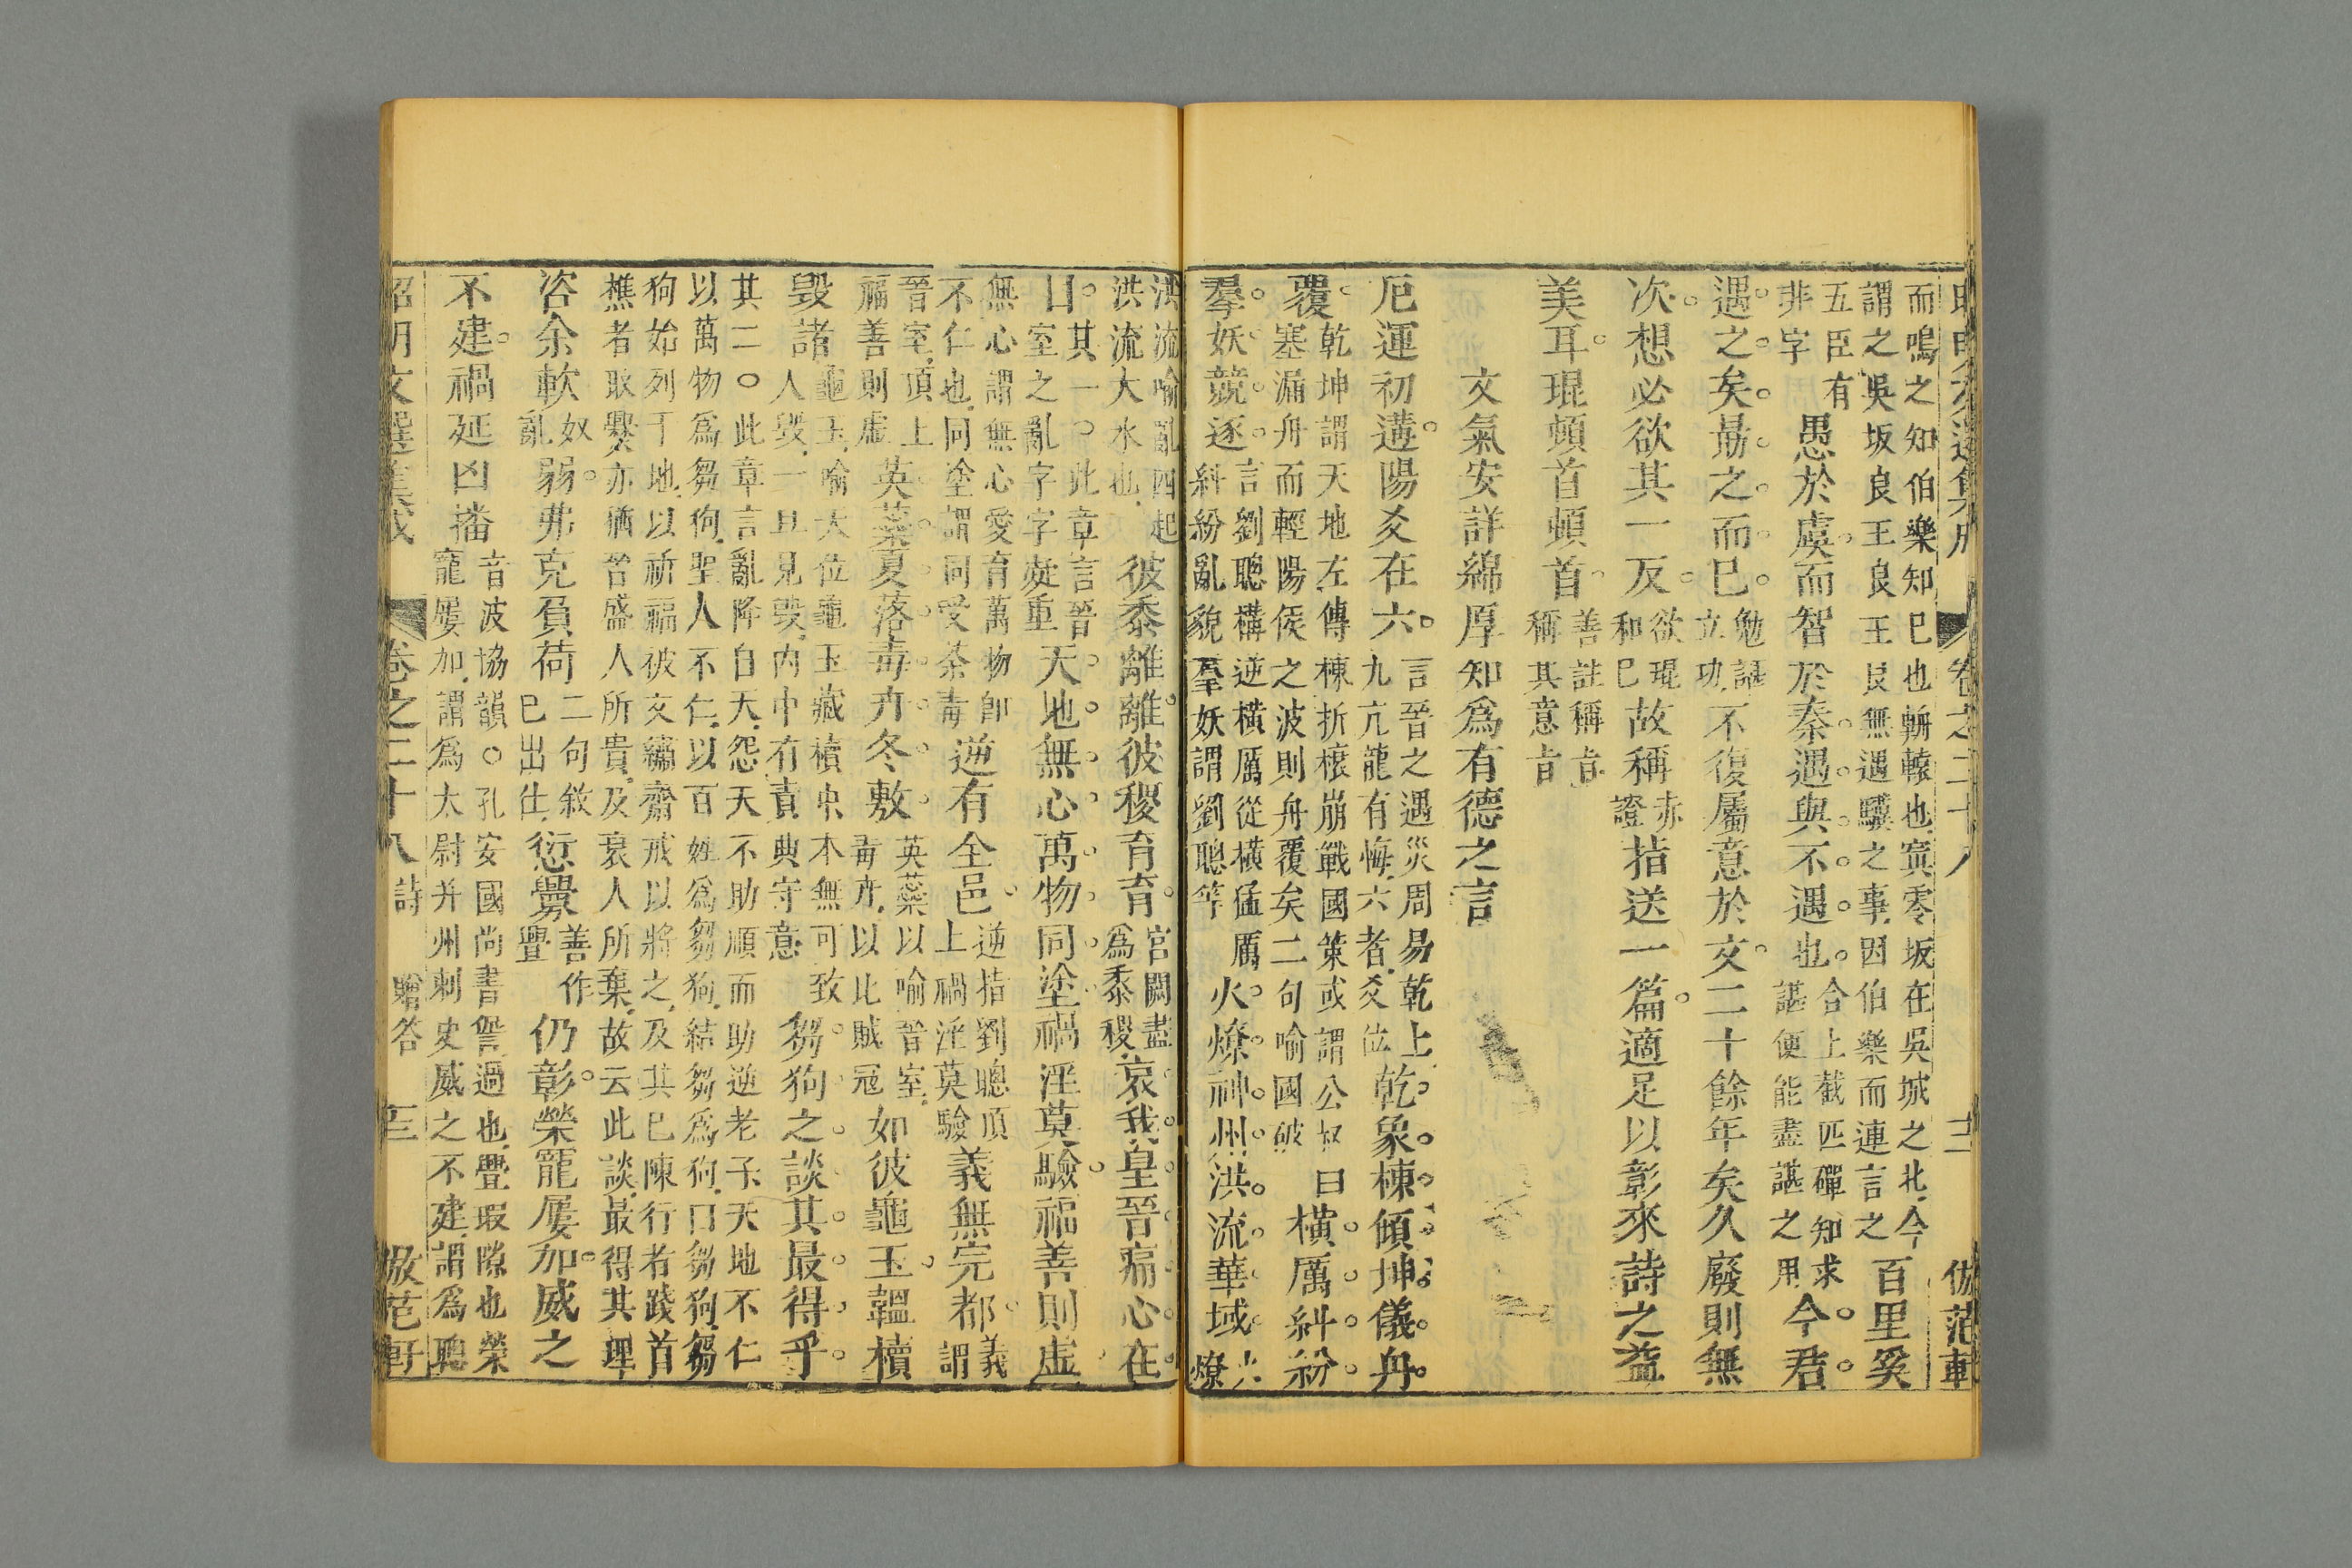 昭明文選集成 卷之二十八 十二 倣范軒
而鳴之知伯樂知已也輧轅也寅零坂在吳城之北今
謂之吳坂良王良王良無遇驥之事因伯樂而連言之百里奚
五臣有非字愚於虞而智於秦遇與不遇也合上截匹磾知求諶便能盡諶之用今君
遇之矣勗之而已勉諶立功不復屬意於文二十餘年矣久廢則無
次想必欲其一反欲琨和已故稱赤證指送一篇適足以彰來詩之益
美耳琨頓首頓首善註稱旨稱其意旨
文氣安詳綿厚知爲有德之言
厄運初遘陽爻在六言晉之遇災周易乾上九亢龍有悔六者爻位乾象棟傾坤儀舟
覆乾坤謂天地左傳棟折榱崩戰國策或謂公叔曰塞漏舟而輕陽侯之波則舟覆矣二句喻國破橫厲糾紛
羣妖競逐言劉聰構逆橫厲從橫猛厲糾紛亂貌羣妖謂劉聰等火燎神州洪流華域火燎
洪流喻亂四起洪流大水也彼黍離離彼稷育育宮闕盡爲黍稷哀我皇晉痛心在
目其一○此章言晉室之亂字字凝重天地無心萬物同塗禍淫莫驗福善則虛
無心謂無心愛育萬物卽不仁也同塗謂同受荼毒逆有全邑逆指劉聰頂上禍淫莫驗義無完都義謂
晉室頂上福善則虛英蘂夏落毒卉冬敷英蘂以喻晉室毒卉以比賊冦如彼龜玉韞櫝
毀諸龜玉喻大位龜玉藏櫝中本無可致人毀一旦見毀內中有責典守意芻狗之談其最得乎
其二○此章言亂降自天怨天不助順而助逆老子天地不仁
以萬物爲芻狗聖人不仁以百姓爲芻狗結芻爲狗曰芻狗芻
狗始列于地以祈福被文繡齋戒以將之及其已陳行者踐首
樵者取爨亦猶晉盛人所貴及衰人所棄故云此談最得其理
咨余軟奴亂弱弗克負荷二句敘已出仕愆釁善作舋仍彰榮寵屢加威之
不建禍延凶播音波協韻○孔安國尚書愆過也舋瑕隙也榮寵屢加謂爲太尉并州刺史威之不建謂爲聰
昭明文選集成 卷之二十八 詩 贈答 十三 倣范軒